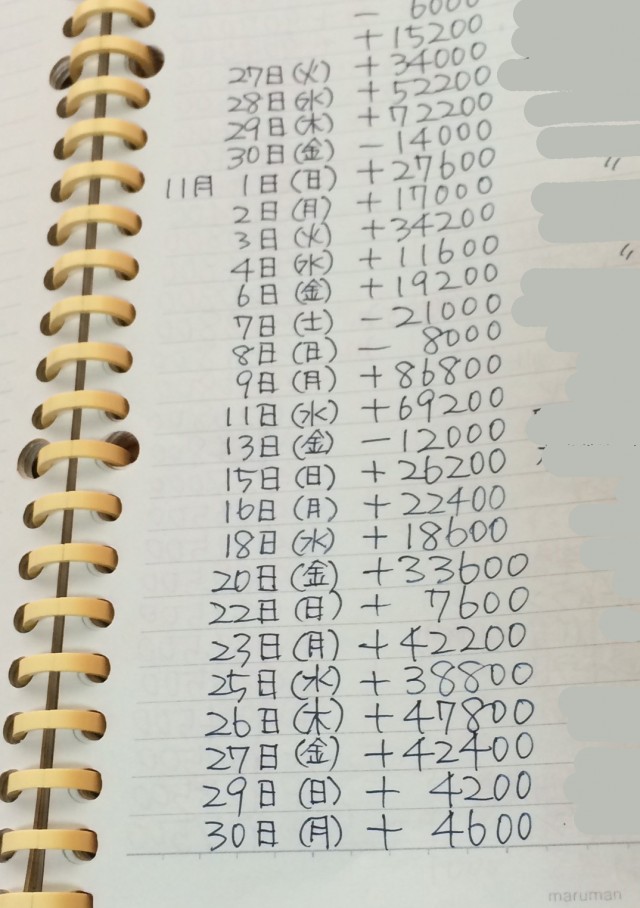 − 6000
+15200
27日(火) +34000
28日(水) +52200
29日(木) +72200
30日(金) −14000
11月 1日(日) +27600 〃
2日(月) +17000
3日(火) +34200
4日(水) +11600 〃
6日(金) +19200
7日(土) −21000
8日(日) − 8000
9日(月) +86800
11日(水) +69200
13日(金) −12000
15日(日) +26200
16日(月) +22400
18日(水) +18600
20日(金) +33600
22日(日) + 7600
23日(月) +42200
25日(水) +38800
26日(木) +47800
27日(金) +42400
29日(日) + 4200
30日(月) + 4600
maruman